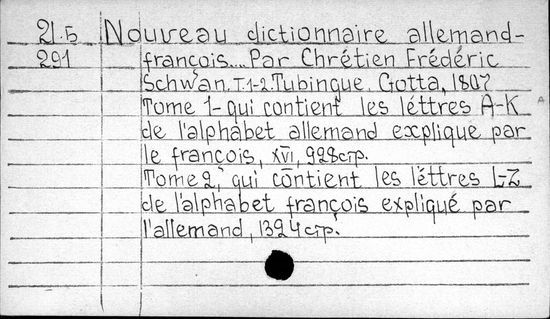 21.5 Nouveau dictionnaire allemand-
291 françois... Par Chrétien Frédéric
Schwan. T.1-2. Tubingue. Gotta, 1807
Tome 1- qui contient les léttres A-K
de l'alphabet allemand explique par
le françois, XVI, 928 стр.
Tome 2, qui contient les léttres L-Z
de l'alphabet françois expliqué par
l'allemand, 1324 стр.